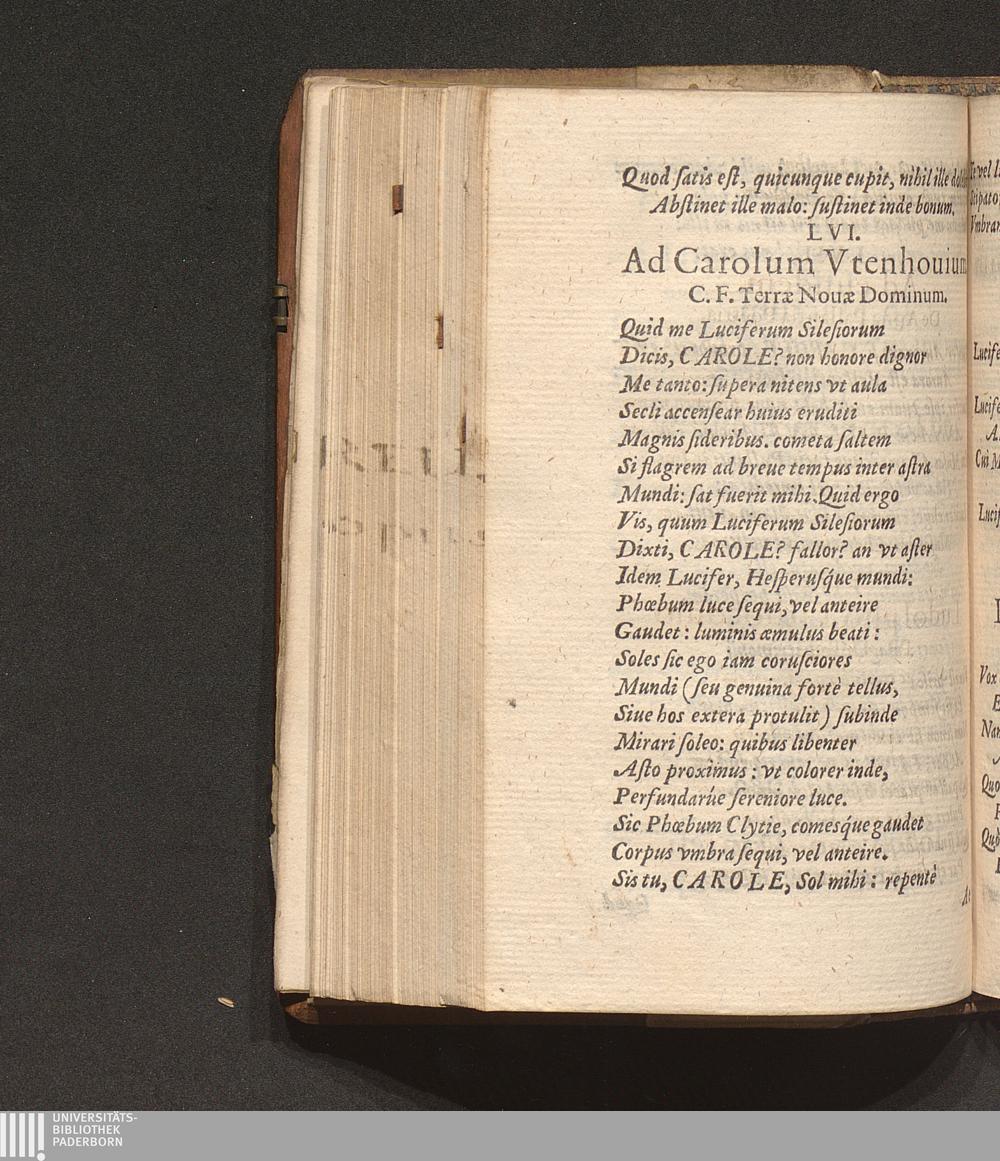 Quod ſatis eſt, quicunque cupit, nihil ille
Abſtinet ille malo: ſuſtinet inde bonum.
LVI.
Ad Carolum Vtenhouium
C. F. Terræ Nouæ Dominum.
Quid me Luciferum Sileſiorum
Dicis, CAROLE? non honore dignor
Me tanto: ſupera nitens vt aula
Secli accenſear huius eruditi
Magnis ſideribus. cometa ſaltem
Si flagrem ad breue tempus inter aſtra
Mundi: ſat fuerit mihi. Quid ergo
Vis, quum Luciferum Sileſiorum
Dixti, CAROLE? fallor? an vt aſter
Idem Lucifer, Heſperuſq́ue mundi:
Phœbum luce ſequi, vel anteire
Gaudet: luminis æmulus beati:
Soles ſic ego iam coruſciores
Mundi (ſeu genuina fortè tellus,
Siue hos extera protulit) ſubinde
Mirari ſoleo: quibus libenter
Aſto proximus: vt colorer inde,
Perfundarúe ſereniore luce.
Sic Phœbum Clytie, comesq́ue gaudet
Corpus vmbra ſequi, vel anteire.
Sis tu, CAROLE, Sol mihi: repentè
UNIVERSITÄTS-
BIBLIOTHEK
PADERBORN